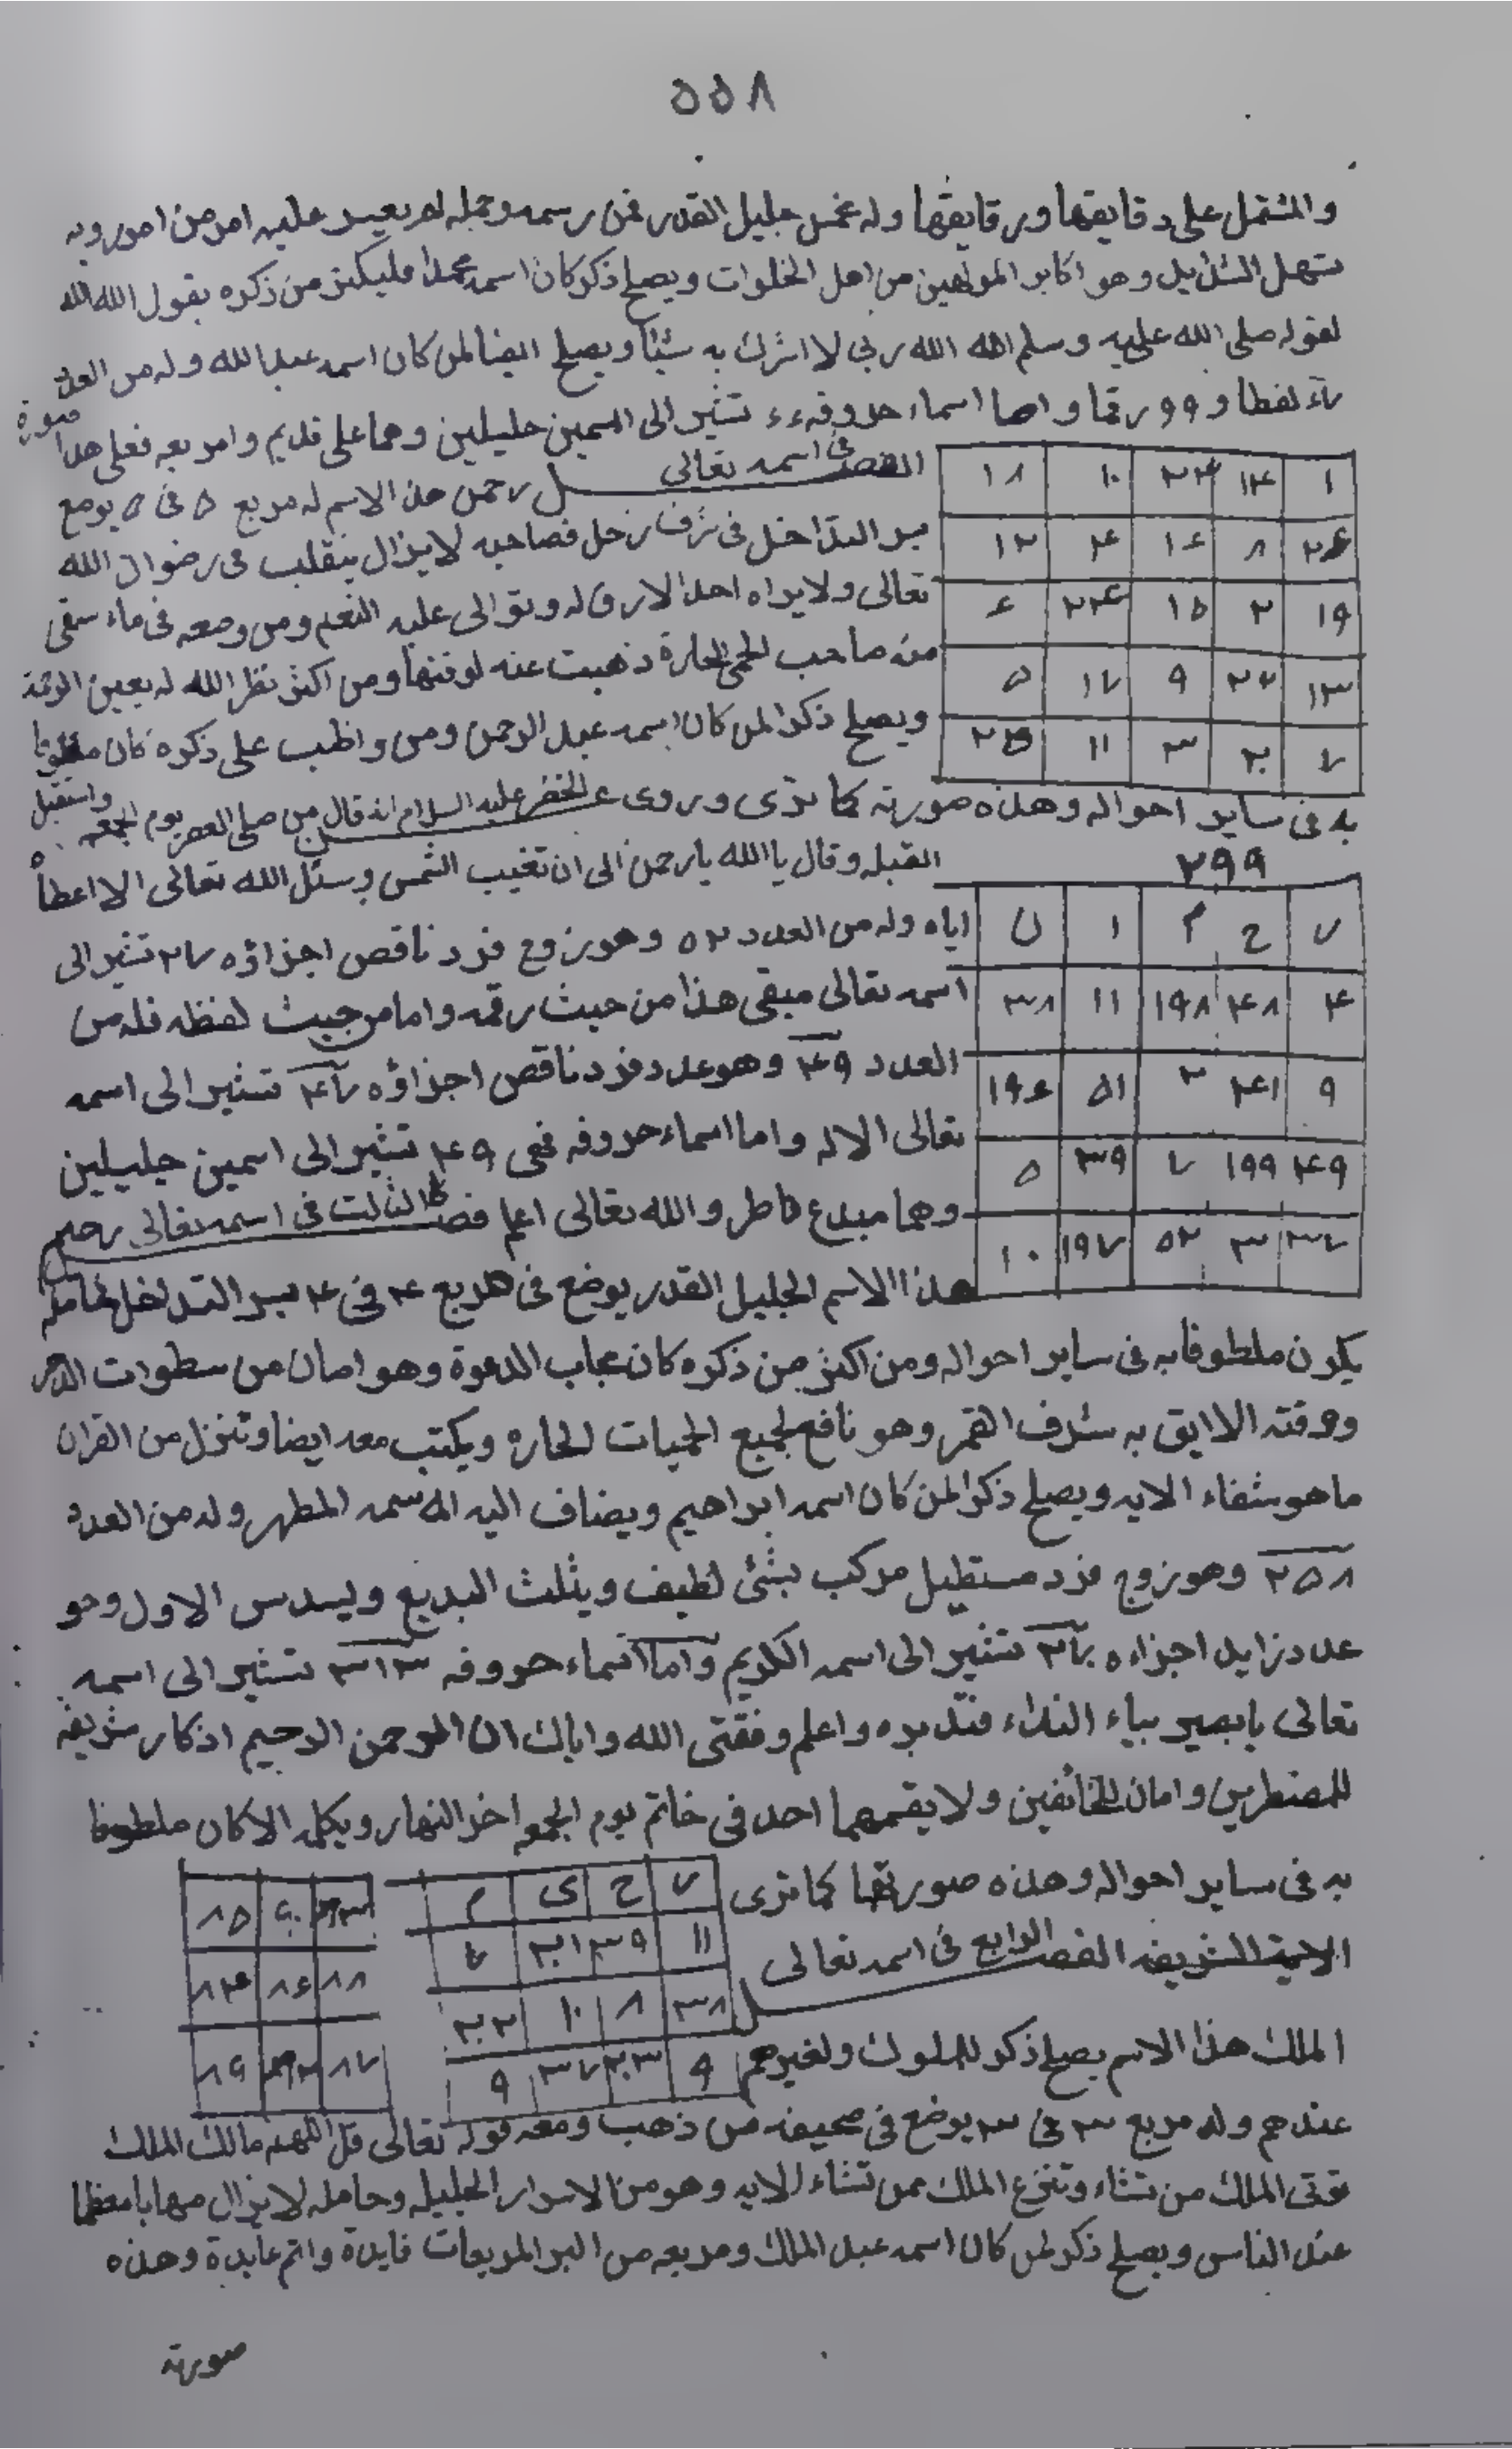 ٥٥٨
والمشتمل على دقايقها ورقايقها وله مخمس جليل القدر فمن رسمه وحمله لم يعسر عليه امر من امور وبه
تسهل الشدايد وهو اكابر المولهين من اهل الخلوات ويصلح ذكر كان اسمه محمدا فليكثر من ذكره بقول الله الله
لقوله صلى الله عليه وسلم الله الله ربي لا اشرك به شيئا ويصلح ايضا لمن كان اسمه عبد الله وله من العدد
لفظا و ٩٩ رقما واما اسماء حروفه تشير الى اسمين جليلين وهما على قديم وامر بعه فعلى هذا صورة
١ ١٤ ٢٢ ١٠ ١٨
الفصل في اسمه تعالى رحمن هذا الاسم له مربع ٥ في ٥ يوضع
٢٤ ٨ ١٦ ٤ ١٢
بسر التداخل في شرف زحل فصاحبه لا يزال ينقلب في رضوان الله
١٩ ٢ ١٥ ٢٣ ٦
تعالى ولا يراه احدا الا رق له وتوالى عليه النعم ومن وضعه في ماء سقى
منه صاحب الحمى الحارة ذهبت عنه لوقتها ومن اكثر نظر الله له بعين الرحمة
١٣ ٢٧ ٩ ١٧ ٥
ويصلح ذكرا لمن كان اسمه عبد الرحمن ومن واظب على ذكره كان ملطوفا
٧ ٢٠ ٣ ١١ ٢٥
به في ساير احواله وهذه صورته كما ترى وروى عن الخضر عليه السلام انه قال من صلى العصر يوم الجمعه واستقبل
القبله وقال يا الله يا رحمن الى ان تغيب الشمس وسئل الله تعالى الا اعطاه
٢٩٩
ر ح م ا ن
اياه وله من العدد ٥٢ وهو زوج فرد ناقص اجزاؤه ٢٧ تشير الى
٤ ٤٨ ١٩٨ ١١ ٣٨
اسمه تعالى مبقى هذا من حيث رقمه واما من حيث لفظه فله من
العدد ٤٩ وهو عدد فرد ناقص اجزاؤه تشير الى اسمه
٩ ٤١ ٢ ٥١ ١٩٦
تعالى الاله واما اسماء حروفه فهي ٤٩ تشير الى اسمين جليلين
٤٩ ١٩٩ ٧ ٣٩ ٥
وهما مبدع فاطر والله تعالى اعلم فصل الثالث في اسمه تعالى رحيم
٣٧ ٣ ٥٢ ١٩٧ ١٠
هذا الاسم الجليل القدر يوضع في مربع ٤ في ٤ بسر التداخل فحامله
يكون ملطوفا به في ساير احواله ومن اكثر من ذكره كان مجاب الدعوة وهو امان من سطوات الدهر
ووقته الاايق به شرف القمر وهو نافع لجميع الحميات الحاره ويكتب معه ايضا وننزل من القران
ما هو شفاء الايه ويصلح ذكرا لمن كان اسمه ابراهيم ويضاف اليه اسمه المطهر وله من العدد
٢٥٨ وهو زوج فرد مستطيل مركب بشئ لطيف ويثلث البديع ويسدس الاول وهو
عدد زايد اجزاءه تشير الى اسمه الكريم واما اسماء حروفه ٣١٣ تشير الى اسمه
تعالى يا بصير بياء النداء فتدبره واعلم وفقني الله واياك ان الرحمن الرحيم اذكار شريفه
للمضطرين وامان للخائفين ولا يقمهما احد في خاتم يوم الجمعه اخر النهار ويكمله الا كان ملطوفا
به في ساير احواله وهذه صورتهما كما ترى
ر ح ى م
١١ ٣٩ ٢٠١ ٧
٣٨ ٨ ١٠ ٢٠٢
٩ ٢٠٣ ٣٧ ٩
٩٠ ٨٥
٨٨ ٨٦ ٨٤
٨٧ ٨٩
الاسمية الشريفه الفصل الرابع في اسمه تعالى
الملك هذا الاسم يصلح ذكر للملوك ولغيرهم
عندهم وله مربع ٣ في ٣ يوضع في صحيفه من ذهب ومعه قوله تعالى قل اللهم مالك الملك
توتى الملك من تشاء وتنزع الملك ممن تشاء الايه وهو من الاسرار الجليله وحامله لا يزال مهابا معظما
عند الناس ويصلح ذكر لمن كان اسمه عبد الملك ومربعه من اكبر المربعات فايدة واتم عايدة وهذه
صورته